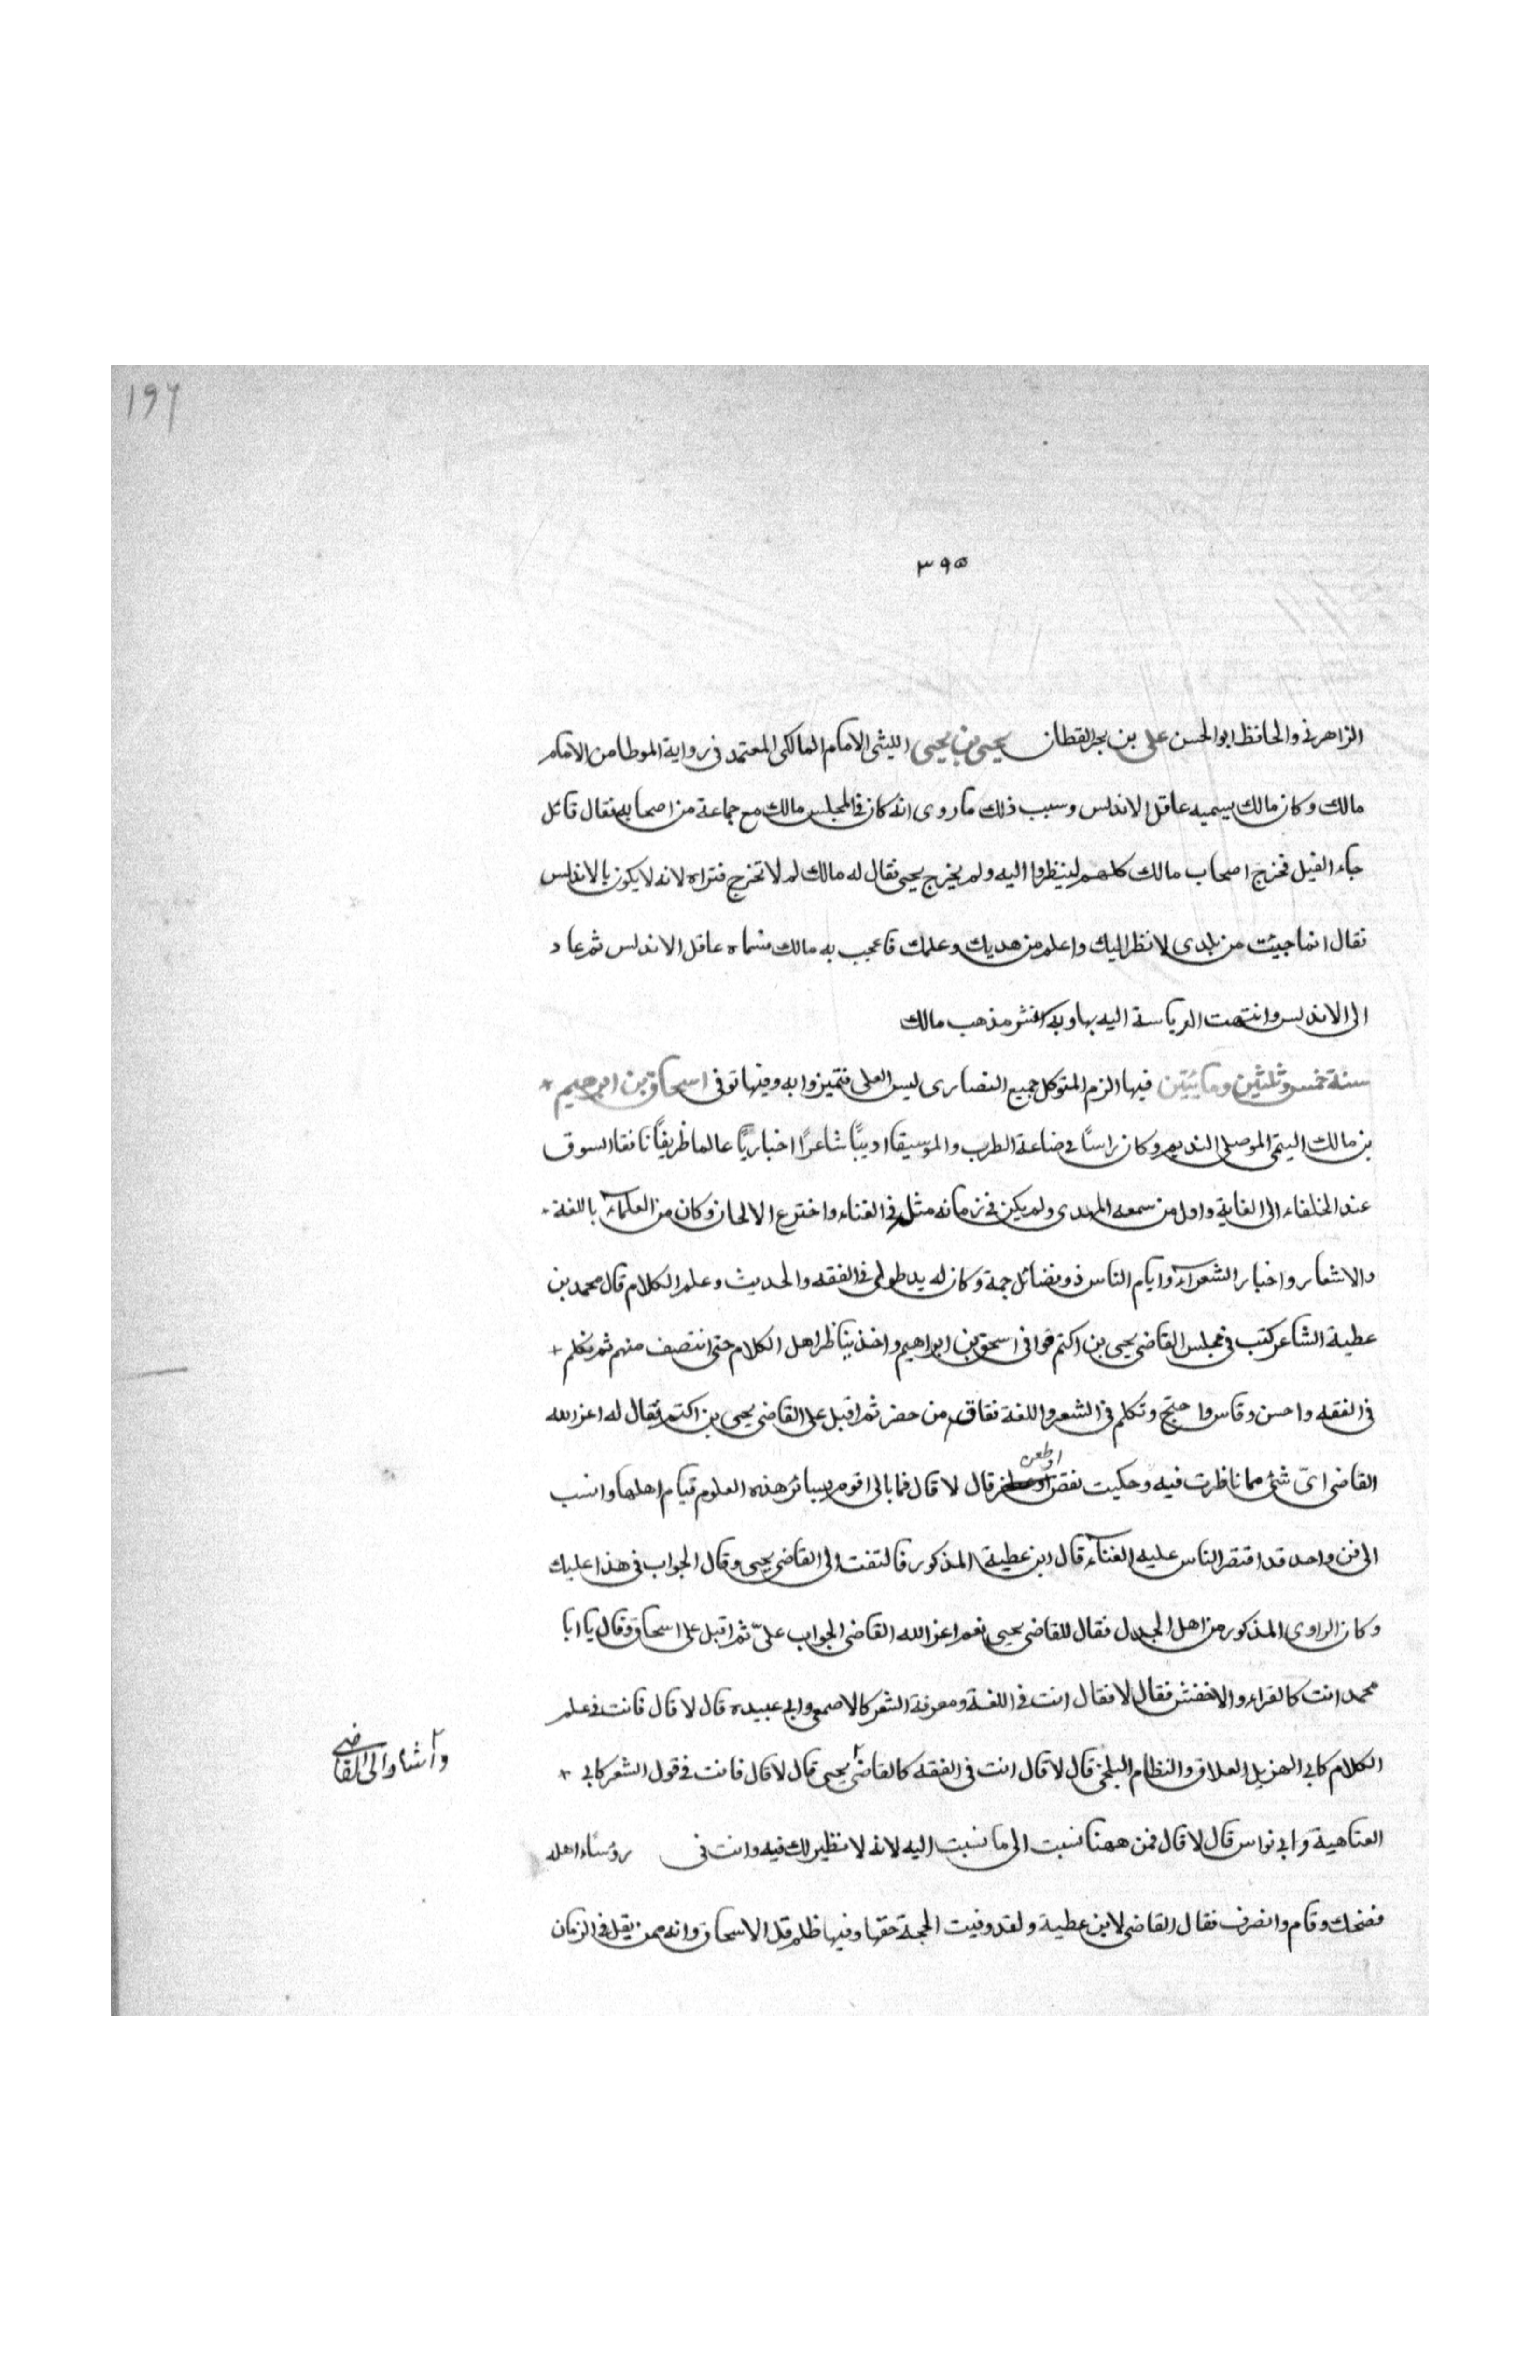 196
٣٩٥
الزاهرنى والحافظ ابوالحسن على بن بحر القطان يحيى بن يحيى الليثى الامام المالكى المعتمد فى رواية الموطا من الامام
مالك وكان مالك يسميه عاقل الاندلس وسبب ذلك ما روى انه كان فى المجلس مالك مع جماعة من اصحابه فقال قائل
جاء الفيل فخرج اصحاب مالك كلهم لينظروا اليه ولم يخرج يحيى فقال له مالك لم لا تخرج فتراه لانه لا يكون بالاندلس
فقال انما جيئت من بلدى لانظر اليك واعلم من هديك وعلمك فاعجب به مالك فسماه عاقل الاندلس ثم عاد
الى الاندلس وانتهت الرياسة اليه بها وبه انتشر مذهب مالك
سنة خمس وثلثين ومايتين فيها الزم المتوكل جميع النصارى لبس العلى فتميزوا به وفيها توفى اسحاق بن ابرهيم
بن مالك اليتمى الموصلى النديم وكان راسًا فى صناعة الطرب والموسيقا اديبًا شاعرًا اخباريًا عالما ظريفًا نافقا السوق
عند الخلفاء الى الغاية واول من سمعه المهدى ولم يكن فى زمانه مثله فى الغناء واخترع الالحان وكان من العلماء باللغة
والاشعار واخبار الشعراء وايام الناس ذو فضائل جمة وكان له يد طولى فى الفقه والحديث وعلم الكلام قال محمد بن
عطية الشاعر كتب فى مجلس القاضى يحيى بن اكتم فوافى اسحق بن ابراهيم واخذ يناظر اهل الكلام حتى انتصف منهم ثم تكلم
فى الفقه واحسن وقاس واحتج وتكلم فى الشعر واللغة ففاق من حضر ثم اقبل على القاضى يحيى بن اكتم فقال له اعز الله
القاضى اىّ شئ مما ناظرت فيه وحكيت نقص اوطعن قال لا قال فما بالى اقوم بسائر هذه العلوم قيام اهلها وانسب
الى فن واحد قد اقتصر الناس عليه الغناء قال ابن عطية المذكور فالتفت الى القاضى يحيى وقال الجواب فى هذا عليك
وكان الراوى المذكور من اهل الجدل فقال للقاضى يحيى نعم اعز الله القاضى الجواب علىّ ثم اقبل على اسحاق وقال يا ابا
محمد انت كالفراء والاخفش فقال لا فقال انت فى اللغة ومعرفة الشعر كالاصمعى وابى عبيده قال لا قال فانت فى علم
الكلام كابى الهزيل العلاف والنظام البلخى قال لا قال انت فى الفقه كالقاضى يحيى قال لا قال فانت فى قول الشعر كابى
واشار الى القاضى
العتاهية وابى نواس قال لا قال فمن ههنا نسبت الى ما نسبت اليه لانه لا نظير لك فيه وانت فى رؤساء اهله
فضحك وقام وانصرف فقال القاضى لابن عطية ولقد وفيت الحجة حقها وفيها ظلم قل الاسحاق وانه ممن يقل فى الزمان